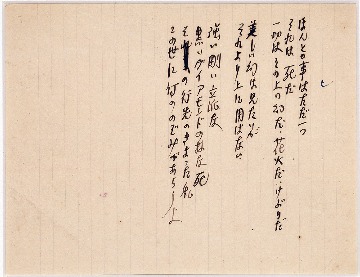 ほんとの事はただ一つ
それは 死だ
一切はその上の幻だ 花火だけがまだ
美しい幻は見たいが
それより上に用はない
強い剛い立派な
黒いダイアモンドのような死
その行先のきまった私
この世に何ののぞみがあらうよ